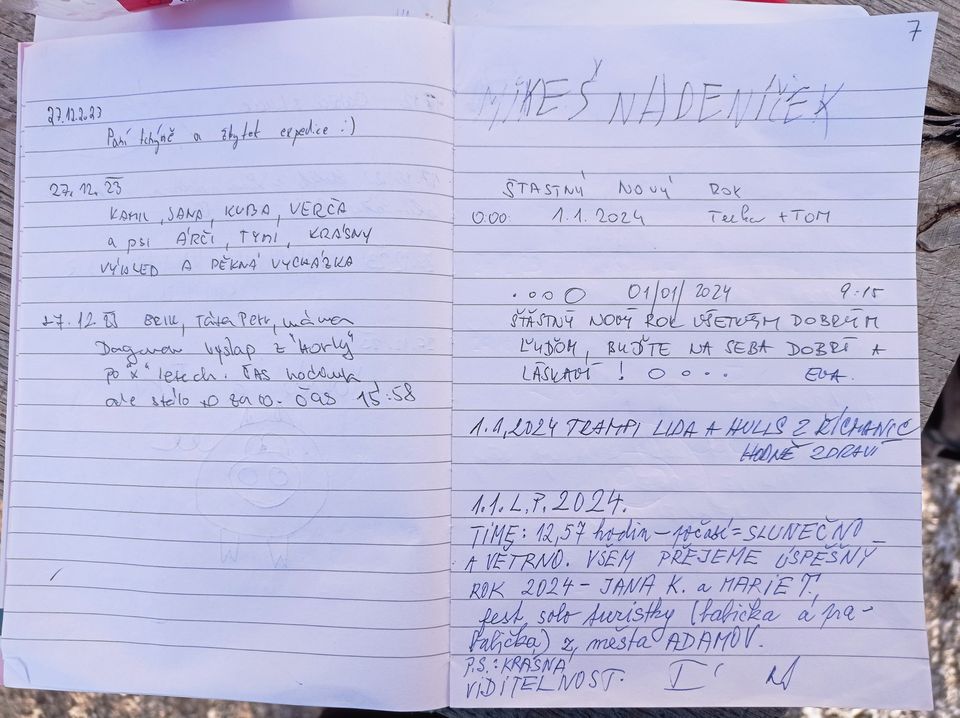 27.12.2023
Paní tchýně a zbytek expedice :)
27. 12. 23
KAMIL, JANA, KUBA, VERČA
a psi ÁRČI, TYMI, KRÁSNÝ
VÝHLED A PĚKNÁ VYCHÁZKA
27. 12. 23 ERIK, Táta Petr, máma
Dagmar výšlap z "Horky"
po "X" letech.
ale stálo to za to. ČAS 15:58
7
MIKEŠ NADENÍČEK
ŠTASTNÝ NOVÝ ROK
0:00 1.1.2024 + TOM
01/01/2024 9:15
ŠŤASTNÝ NOVÝ ROK VŠETKÝM DOBRÝM
ĽUĎOM, BUĎTE NA SEBA DOBRÍ A
LÁSKAVÍ! EVA.
1.1.2024 TRAMPI LIDA A HULIS Z ŘÍCMANIC
HODNĚ ZDRAVÍ
1.1. L.P. 2024.
TIME: 12,57 hodin - počasí = SLUNEČNO
A VĚTRNO. VŠEM PŘEJEME ÚSPĚŠNÝ
ROK 2024 - JANA K. a MARIE T,
fest solo turistky (babička a pra-
babička) z města ADAMOV.
P.S.: KRÁSNÁ
VIDITELNOST.